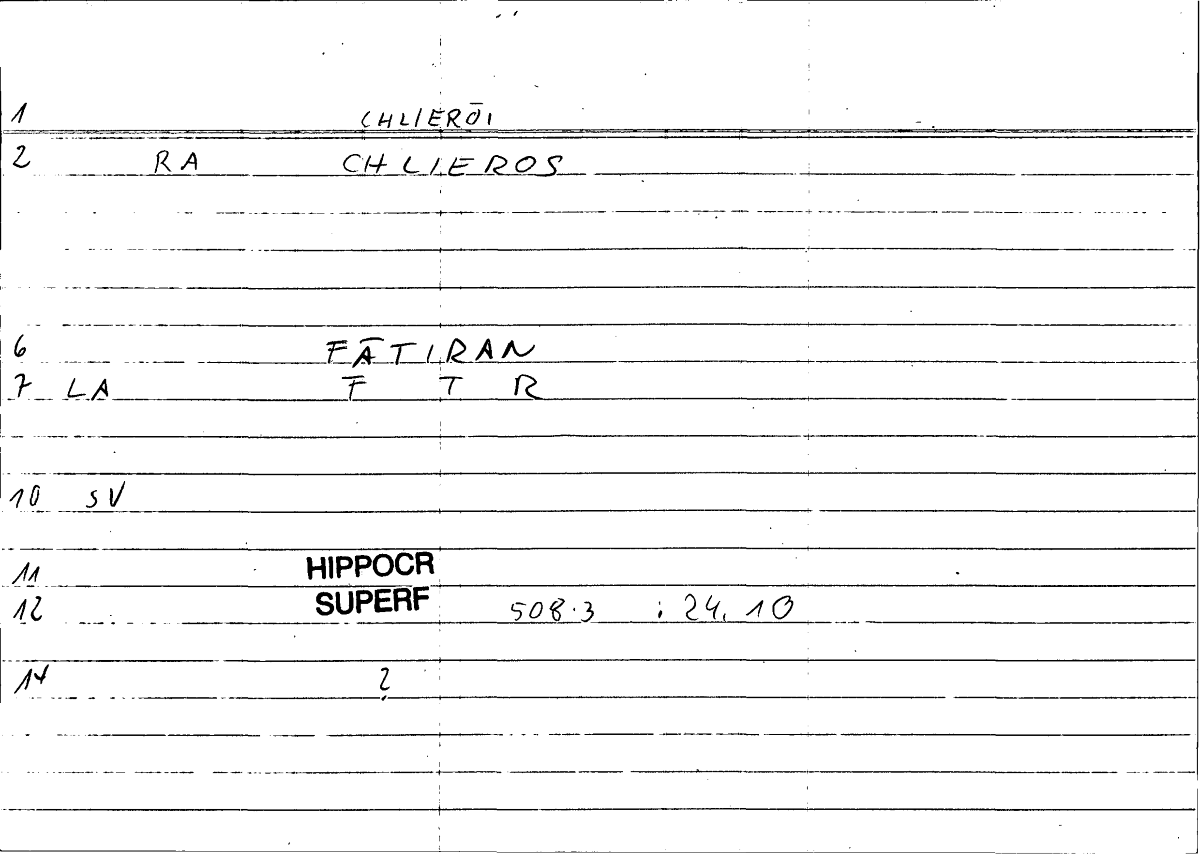 1 CHLIERŌI
2 RA CHLIEROS
6 FĀTIRAN
7 LA F T R
10 SV
11 HIPPOCR
12 SUPERF 508.3 : 24.10
14 ?